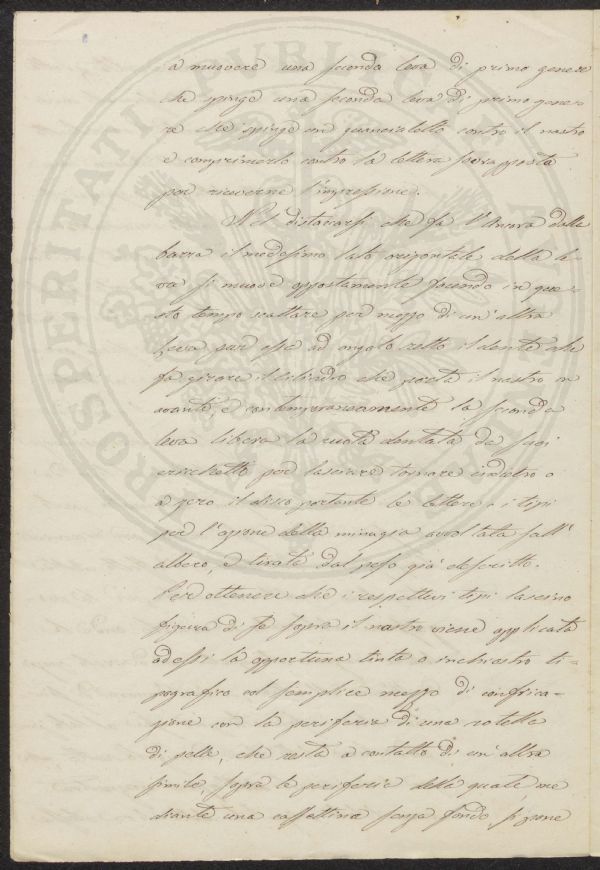 a muovere una seconda leva di primo genere
che spinge una seconda leva di primo gene-
re che spinge un quancialetto contro il nastro
e comprimerlo contro la lettera sovrapposta
per riceverne l'impressione.
Nel distaccarsi che fa l'Ancora dalla
barra il medesimo lato orizontale della le-
va si muove oppostamente facendo in que-
sto tempo scattare per mezzo di un'altra
Leva pur esse ad angolo retto il dente che
fa girare il cilindro che porta il nastro in
avanti, e contemporaneamente la seconda
leva libera la ruota dentata da suoi
cricchetti per lasciare tornare indietro o
a zero il disco portante le lettere o i tipi
per l'azione della minugia avvoltata sull'
albero, e tirata dal peso già descritto.
Per ottenere che i respettivi tipi lascino
figura di se sopra il nastro viene applicata
ad essi la opportuna tinta o inchiostro ti-
pografico col semplice mezzo di confrica-
zione con la periferia di una rotella
di pelle, che resta a contatto di un'altra
simile, sopra la periferia della quale me
diante una cassettina senza fondo si pone
PROSPERITATI PUBLICAE